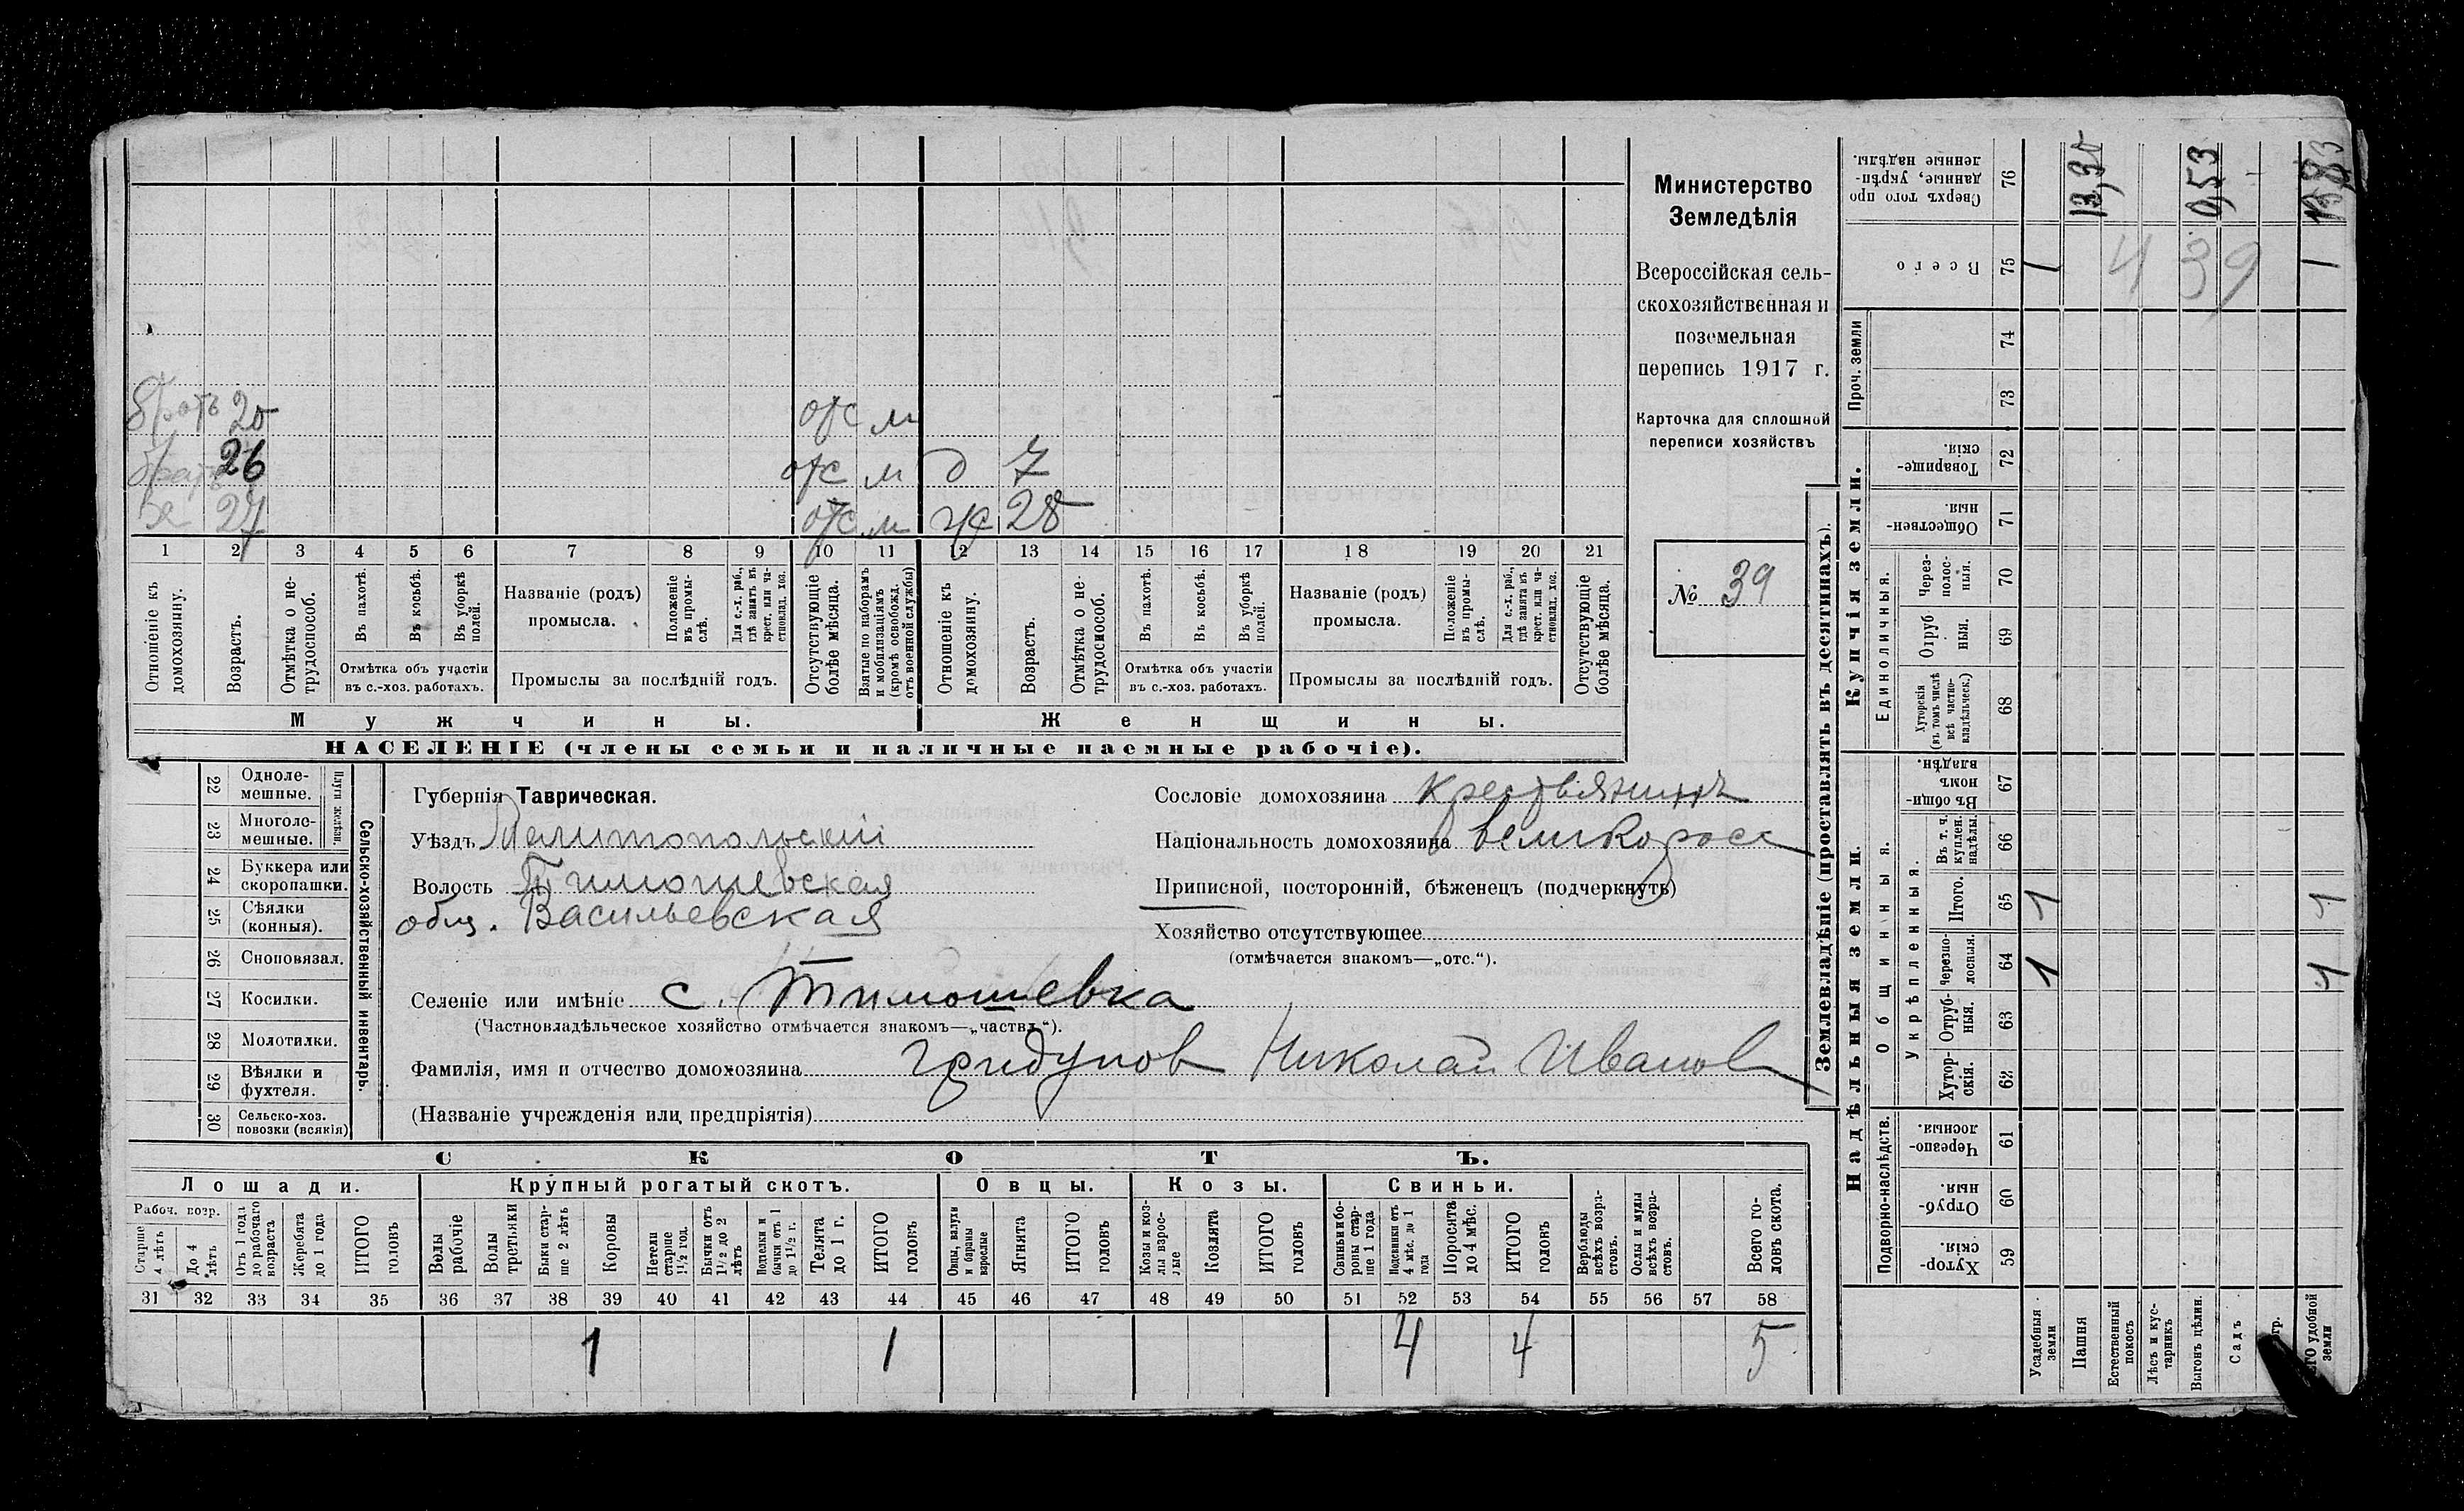 братъ 20 отс м
братъ 26 отс м д 7
27 отс м ж 28
1 2 3 4 5 6 7 8 9 10 11 12 13 14 15 16 17 18 19 20 21
Отношеніе къ домохозяину.
Возрастъ.
Отмѣтка о нетрудоспособ.
Въ пахотѣ.
Въ косьбѣ.
Въ уборкѣ полей.
Отмѣтка объ участіи
въ с.-хоз. работахъ.
Названіе (родъ)
промысла.
Положеніе въ промыслѣ.
Для с.-х. раб., гдѣ занятъ въ крест. или частновлад. хоз.
Промыслы за послѣдній годъ.
Отсутствующіе болѣе мѣсяца.
Взятые по наборамъ и мобилизаціямъ (кромѣ освобожд. отъ военной службы)
Отношеніе къ домохозяину.
Возрастъ.
Отмѣтка о нетрудоспособ.
Въ пахотѣ.
Въ косьбѣ.
Въ уборкѣ полей.
Отмѣтка объ участіи
въ с.-хоз. работахъ.
Названіе (родъ)
промысла.
Положеніе въ промыслѣ.
Для с.-х. раб., гдѣ занята въ крест. или частновлад. хоз.
Промыслы за послѣдній годъ.
Отсутствующіе болѣе мѣсяца.
Мужчины.
Женщины.
НАСЕЛЕНІЕ (члены семьи и наличные наемные рабочіе).
Министерство
Земледѣлія
Всероссійская сель-
скохозяйственная и
поземельная
перепись 1917 г.
Карточка для сплошной
переписи хозяйствъ
№ 39
Сельско-хозяйственный инвентарь.
Плуги желѣзн.
22 Одноле-
мешные.
23 Многоле-
мешные.
24 Буккера или
скоропашки.
25 Сѣялки
(конныя).
26 Сноповязал.
27 Косилки.
28 Молотилки.
29 Вѣялки и
фухтеля.
30 Сельско-хоз.
повозки (всякія)
Губернія Таврическая.
Уѣздъ Мелитопольскій
Волость Тимошевская
общ. Васильевская
Селеніе или имѣніе с. Тимошевка
(Частновладѣльческое хозяйство отмѣчается знакомъ—„частвл.“).
Фамилія, имя и отчество домохозяина Гридунов Николай Иванов
(Названіе учрежденія или предпріятія)
Сословіе домохозяина крестьянинъ
Національность домохозяина великоросс
Приписной, посторонній, бѣженецъ (подчеркнуть)
Хозяйство отсутствующее
(отмѣчается знакомъ—„отс.“).
СКОТЪ.
Лошади.
Крупный рогатый скотъ.
Овцы.
Козы.
Свиньи.
Рабоч. возр.
Старше 4 лѣтъ
До 4 лѣтъ
Отъ 1 года до рабочаго возраста
Жеребята до 1 года
ИТОГО головъ
Волы рабочіе
Волы третьяки
Быки старше 2 лѣтъ
Коровы
Нетели старше 1½ год.
Бычки отъ 1½ до 2 лѣтъ
Телята до 1 г.
ИТОГО головъ
Овцы, валухи и бараны взрослые
Ягнята
ИТОГО головъ
Козы и козлы взрослые
Козлята
ИТОГО головъ
Свиньи и боровы старше 1 года
Подсвинки отъ 4 мѣс. до 1 года
Поросята до 4 мѣс.
ИТОГО головъ
Верблюды всѣхъ возрастовъ.
Ослы и мулы всѣхъ возрастовъ.
Всего головъ скота.
31 32 33 34 35 36 37 38 39 40 41 42 43 44 45 46 47 48 49 50 51 52 53 54 55 56 57 58
1 1 4 4 5
Землевладѣніе (проставлять въ десятинахъ).
Надѣльныя земли.
Купчія земли.
Проч. земли
Подворно-наслѣдств.
Общинныя.
Укрѣпленныя.
Единоличныя.
Сверхъ того проданные, укрѣпленные надѣлы. 76 13,30 0,53
Всего 75 1 439 1
74
73
Товарищескія. 72
Общественныя. 71
Черезполосныя. 70
Отрубныя. 69
Хуторскія (въ томъ числѣ всѣ частновладѣльческ.) 68
Въ общинномъ владѣн. 67
Въ т. ч. куплен. надѣлы. 66
Итого. 65 1 1
Черезполосныя. 64 1 1
Отрубныя. 63
Хуторскія. 62
Черезполосныя. 61
Отрубныя. 60
Хуторскія. 59
Усадебныя земли
Пашня
Естественный покосъ
Лѣсъ и кустарникъ
Выгонъ цѣлин.
Садъ
удобной земли